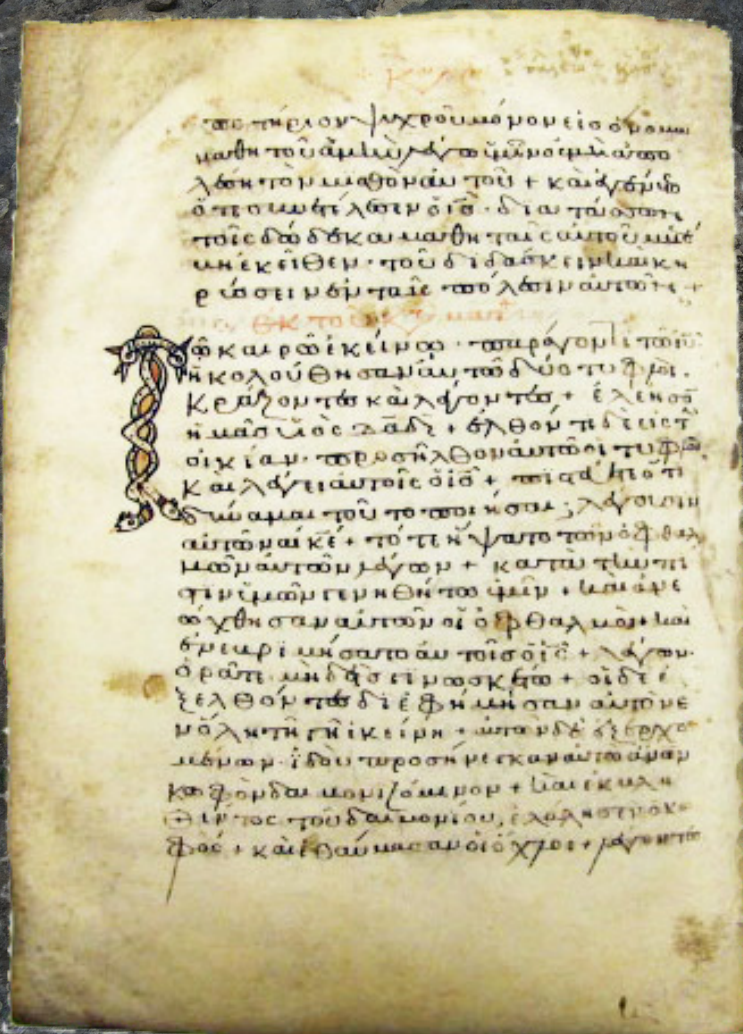 ποτήριον ψυχροῦ μόνον εἰς ὄνομα
μαθητοῦ ἀμὴν λέγω ὑμῖν οὐ μὴ ἀπο
λέσῃ τὸν μισθὸν αὐτοῦ + καὶ ἐγένετο
ὅτε συνετέλεσεν ὁ ἰς · διατάσσων
τοῖς δώδεκα μαθηταῖς αὐτοῦ μετέ
βη ἐκεῖθεν · τοῦ διδάσκειν καὶ κη
ρύσσειν ἐν ταῖς πόλεσιν αὐτῶν +
ἐκ τοῦ κατὰ
Τῷ καιρῷ ἐκείνῳ · παράγοντι τῷ ἰυ
ἠκολούθησαν αὐτῷ δύο τυφλοὶ .
Κράζοντες καὶ λέγοντες + ἐλέησον
ἡμᾶς υἱὸς δαδ + ἐλθόντι δὲ εἰς τὴν
οἰκίαν · προσῆλθον αὐτῷ οἱ τυφλοὶ
Καὶ λέγει αὐτοῖς ὁ ις + πιστεύετε ὅτι
δύναμαι τοῦτο ποιῆσαι ; λέγουσιν
αὐτῷ ναὶ κε + τότε ἥψατο τῶν ὀφθαλ
μῶν αὐτῶν λέγων + κατὰ τὴν πί
στιν ὑμῶν γενηθήτω ὑμῖν + καὶ ἀνε
ῴχθησαν αὐτῶν οἱ ὀφθαλμοὶ + καὶ
ἐνεβριμήσατο αὐτοῖς ὁ ις + λέγων ·
ὁρᾶτε μηδεὶς γινωσκέτω + οἱ δὲ ἐ
ξελθόντες διεφήμησαν αὐτὸν ἐ
ν ὅλῃ τῇ γῇ ἐκείνῃ + αὐτῶν δὲ ἐξερχο
μένων · ἰδοὺ προσήνεγκαν αὐτῷ ἄνον
κωφὸν δαιμονιζόμενον + καὶ ἐκβλη
θέντος τοῦ δαιμονίου, ἐλάλησεν ὁ κω
φός + καὶ ἐθαύμασαν οἱ ὄχλοι + λέγοντες